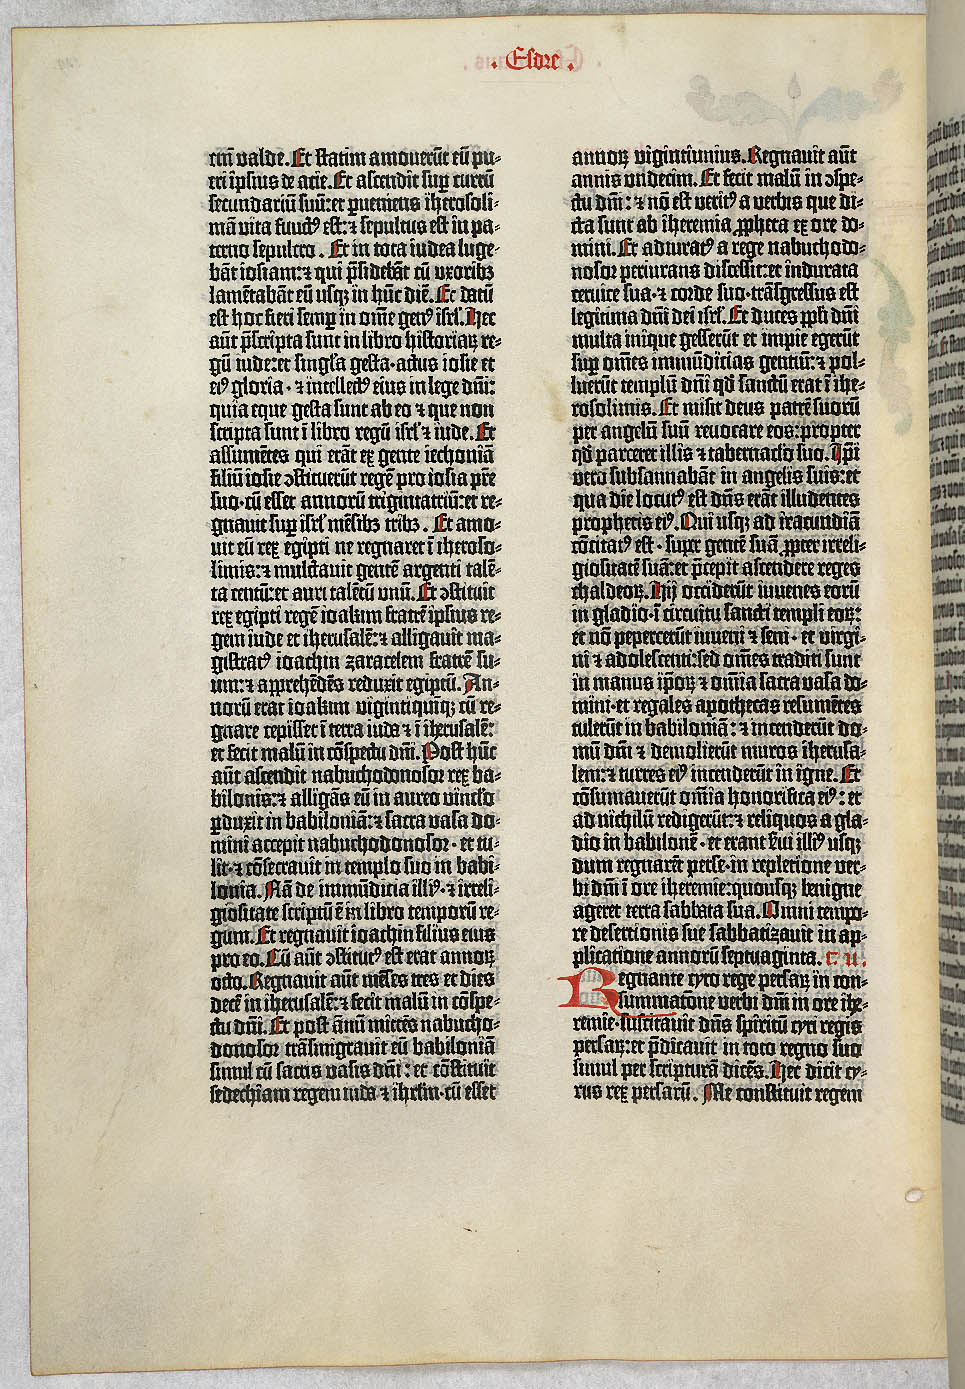 · Esdre ·
tum valde. Et statim amoverūt eū pu-
eri ipsius de acie. Et ascendit suꝑ currū
secundariū suū: et ꝑveniens iherosoli-
mā vita fūctꝰ est: ⁊ sepultus est in pa-
terno sepulcro. Et in tota iudea luge-
bāt iosiam: ⁊ qui p̄sidebāt cū uxoribꝫ
lamētabāt eū usqꝫ in hūc diē. Et datū
est hoc fieri semꝑ in om̄e genꝰ isrl̓. Hec
aūt p̄scripta sunt in libro historiaꝝ re-
gū iude: et singl̓a gesta · actus iosie et
eiꝰ gloria · ⁊ intellectꝰ eius in lege dn̄i:
quia eque gesta sunt ab eo ⁊ que non
scripta sunt ī libro regū isrl̓ ⁊ iude. Et
assumētes qui erāt ex gente iechoniā
filiū iosie ↄstituerūt regē pro iosia p̄re
suo · cū esset annorū trigintatriū: et re-
gnavit suꝑ isrl̓ mēsibꝫ tribꝫ. Et amo-
vit eū rex egipti ne regnaret ī iheroso-
limis: ⁊ mulctavit gentē argenti talē-
ta centū: et auri talētū unū. Et ↄstituit
rex egipti regē ioakim fratrē ipsius re-
gem iude et iherusalē: ⁊ alligavit ma-
gistratꝰ ioachim zaracelem fratrē su-
um: ⁊ apprehēdēs reduxit egiptū. An-
norū erat ioakim vigintiquīqꝫ cū re-
gnare cepisset ī terra iuda ⁊ ī iherusalē:
et fecit malū in cōspectu dn̄i. Post hūc
aūt ascendit nabuchodonosor rex ba-
bilonis: ⁊ alligās eū in aureo vincl̓o
ꝑduxit in babiloniā: ⁊ sacra vasa do-
mini accepit nabuchodonosor · et tu-
lit · ⁊ cōsecravit in templo suo in babi-
lonia. Nā de immūdicia illiꝰ · ⁊ irreli-
giositate scriptū ē in libro temporū re-
gum. Et regnavit ioachin filius eius
pro eo. Cū aūt ↄstitutꝰ est erat annoꝝ
octo. Regnavit aūt mēses tres et dies
decē in iherusalē: ⁊ fecit malū in cōspe-
ctu dn̄i. Et post ānū mittēs nabucho-
donosor trāsmigravit eū babiloniā
simul cū sacris vasis dn̄i: et cōstituit
sedechiam regem iuda ⁊ ihrl̓m · cū esset
annoꝝ vigintiunius. Regnavit aūt
annis undecim. Et fecit malū in ↄspe-
ctu dn̄i: ⁊ nō est veritꝰ a verbis que di-
cta sunt ab iheremia ꝓpheta ex ore do-
mini. Et adiuratꝰ a rege nabuchodo-
nosor periurans discessit: et indurata
cervice sua · ⁊ corde suo · trāsgressus est
legitima dn̄i dei isrl̓. Et duces ppl̓i dn̄i
multa inique gesserūt et impie egerūt
suꝑ om̄es immūdicias gentiū: ⁊ pol-
luerūt templū dn̄i qd̓ sanctū erat ī ihe-
rosolimis. Et misit deus patrē suorū
per angelū suū revocare eos: propter
qd̓ parceret illis ⁊ tabernacl̓o suo. Ip̄i
vero subsannabāt in angelis suis: et
qua die locutꝰ est dn̄s erāt illudentes
prophetis eiꝰ. Qui usqꝫ ad iracundiā
cōcitatꝰ est · supr̄ gentē suā ꝓpter irreli-
giositatē suā: et p̄cepit ascendere reges
chaldeoꝝ. Hij occiderūt iuvenes eorū
in gladio · ī circuitu sancti templi eoꝝ:
et nō pepercerūt iuveni ⁊ seni · et virgi-
ni ⁊ adolescenti: sed om̄es traditi sunt
in manus ip̄oꝝ ⁊ om̄ia sacra vasa do-
mini · et regales apothecas resumētes
tulerūt in babiloniā: ⁊ incenderūt do-
mū dn̄i ⁊ demolierūt muros iherusa-
lem: ⁊ turres eiꝰ incenderūt in igne. Et
cōsumaverūt om̄ia honorifica eiꝰ: et
ad nichilū redigerūt: ⁊ reliquos a gla-
dio in babilonē · et erant ẜvi illiꝰ usqꝫ
dum regnarēt perse · in repletione ver-
bi dn̄i ī ore iheremie: quousqꝫ benigne
ageret terra sabbata sua. Omni tempo-
re desertionis sue sabbatizavit in ap-
plicatione annorū septuaginta. c. ii.
Regnante cyro rege persaꝝ in con-
summatōne verbi dn̄i in ore ihe-
remie · suscitavit dn̄s spiritū cyri regis
persaꝝ: et p̄dicavit in toto regno suo
simul per scripturā dicēs. Hec dicit cy-
rus rex persarū. Me constituit regem